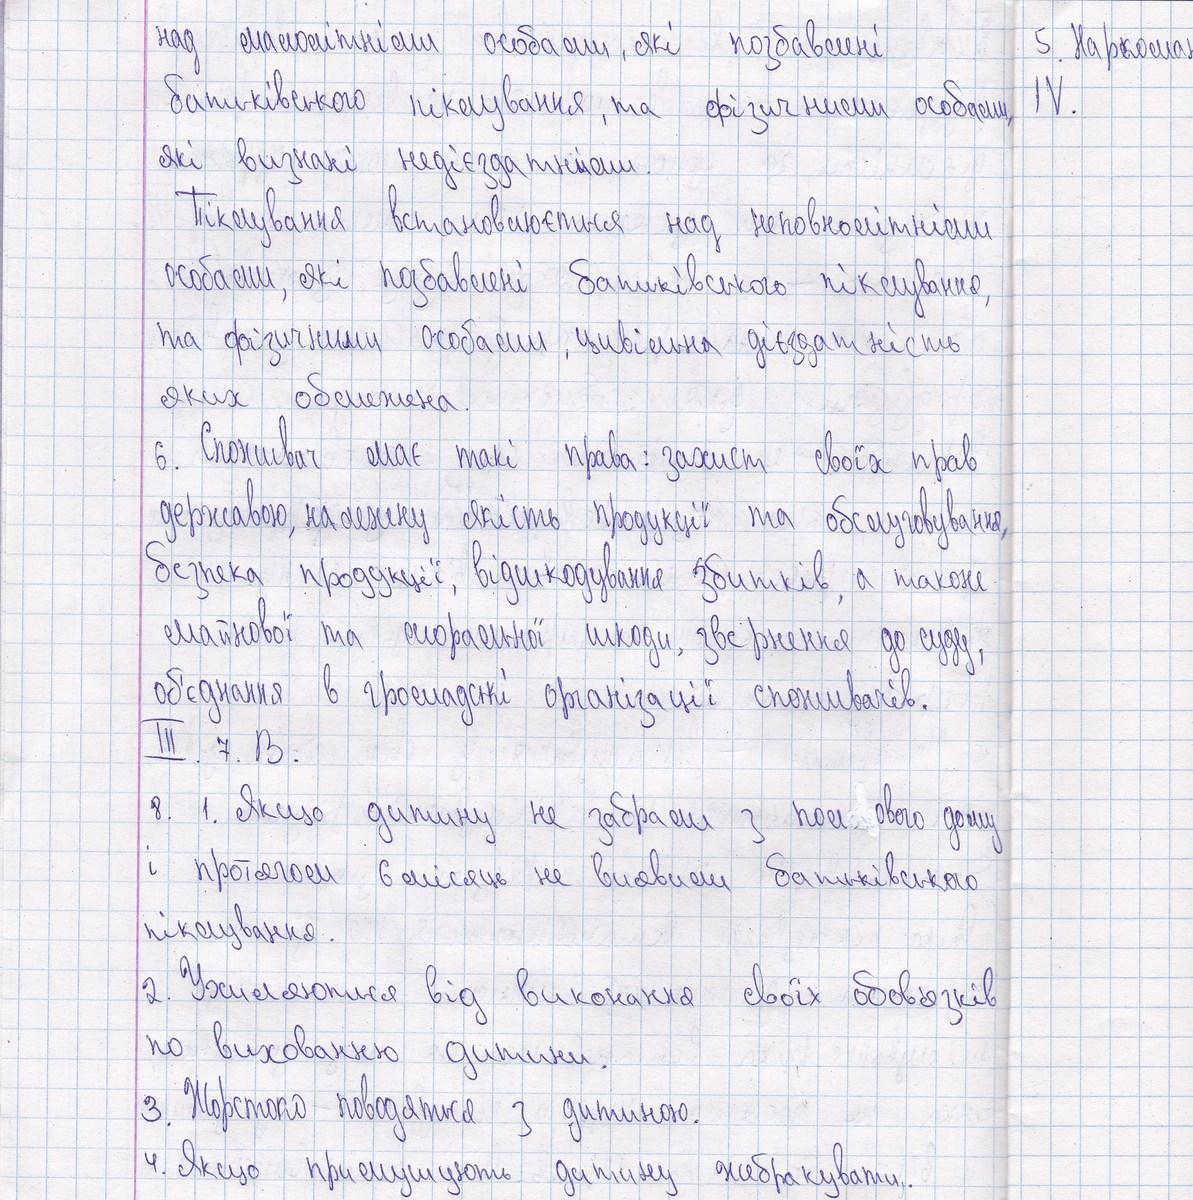 над малолітніми особами, які позбавлені
батьківського піклування, та фізичними особами,
які визнані недієздатними.
Піклування встановлюється над неповнолітніми
особами, які позбавлені батьківського піклування,
та фізичними особами, цивільна дієздатність
яких обмежена.
6. Споживач має такі права: захист своїх прав
державою, належну якість продукції та обслуговування,
безпека продукції, відшкодування збитків, а також
майнової та моральної шкоди, звернення до суду,
об'єднання в громадські організації споживачів.
III. 7. В.
8. 1. Якщо дитину не забрали з пол ового дому
і протягом 6 місяць не виявили батьківського
піклування.
2. Ухиляються від виконання своїх обов'язків
по вихованню дитини.
3. Жорстоко поводяться з дитиною.
4. Якщо примушують дитину жебракувати.
5. Наркоман
IV.